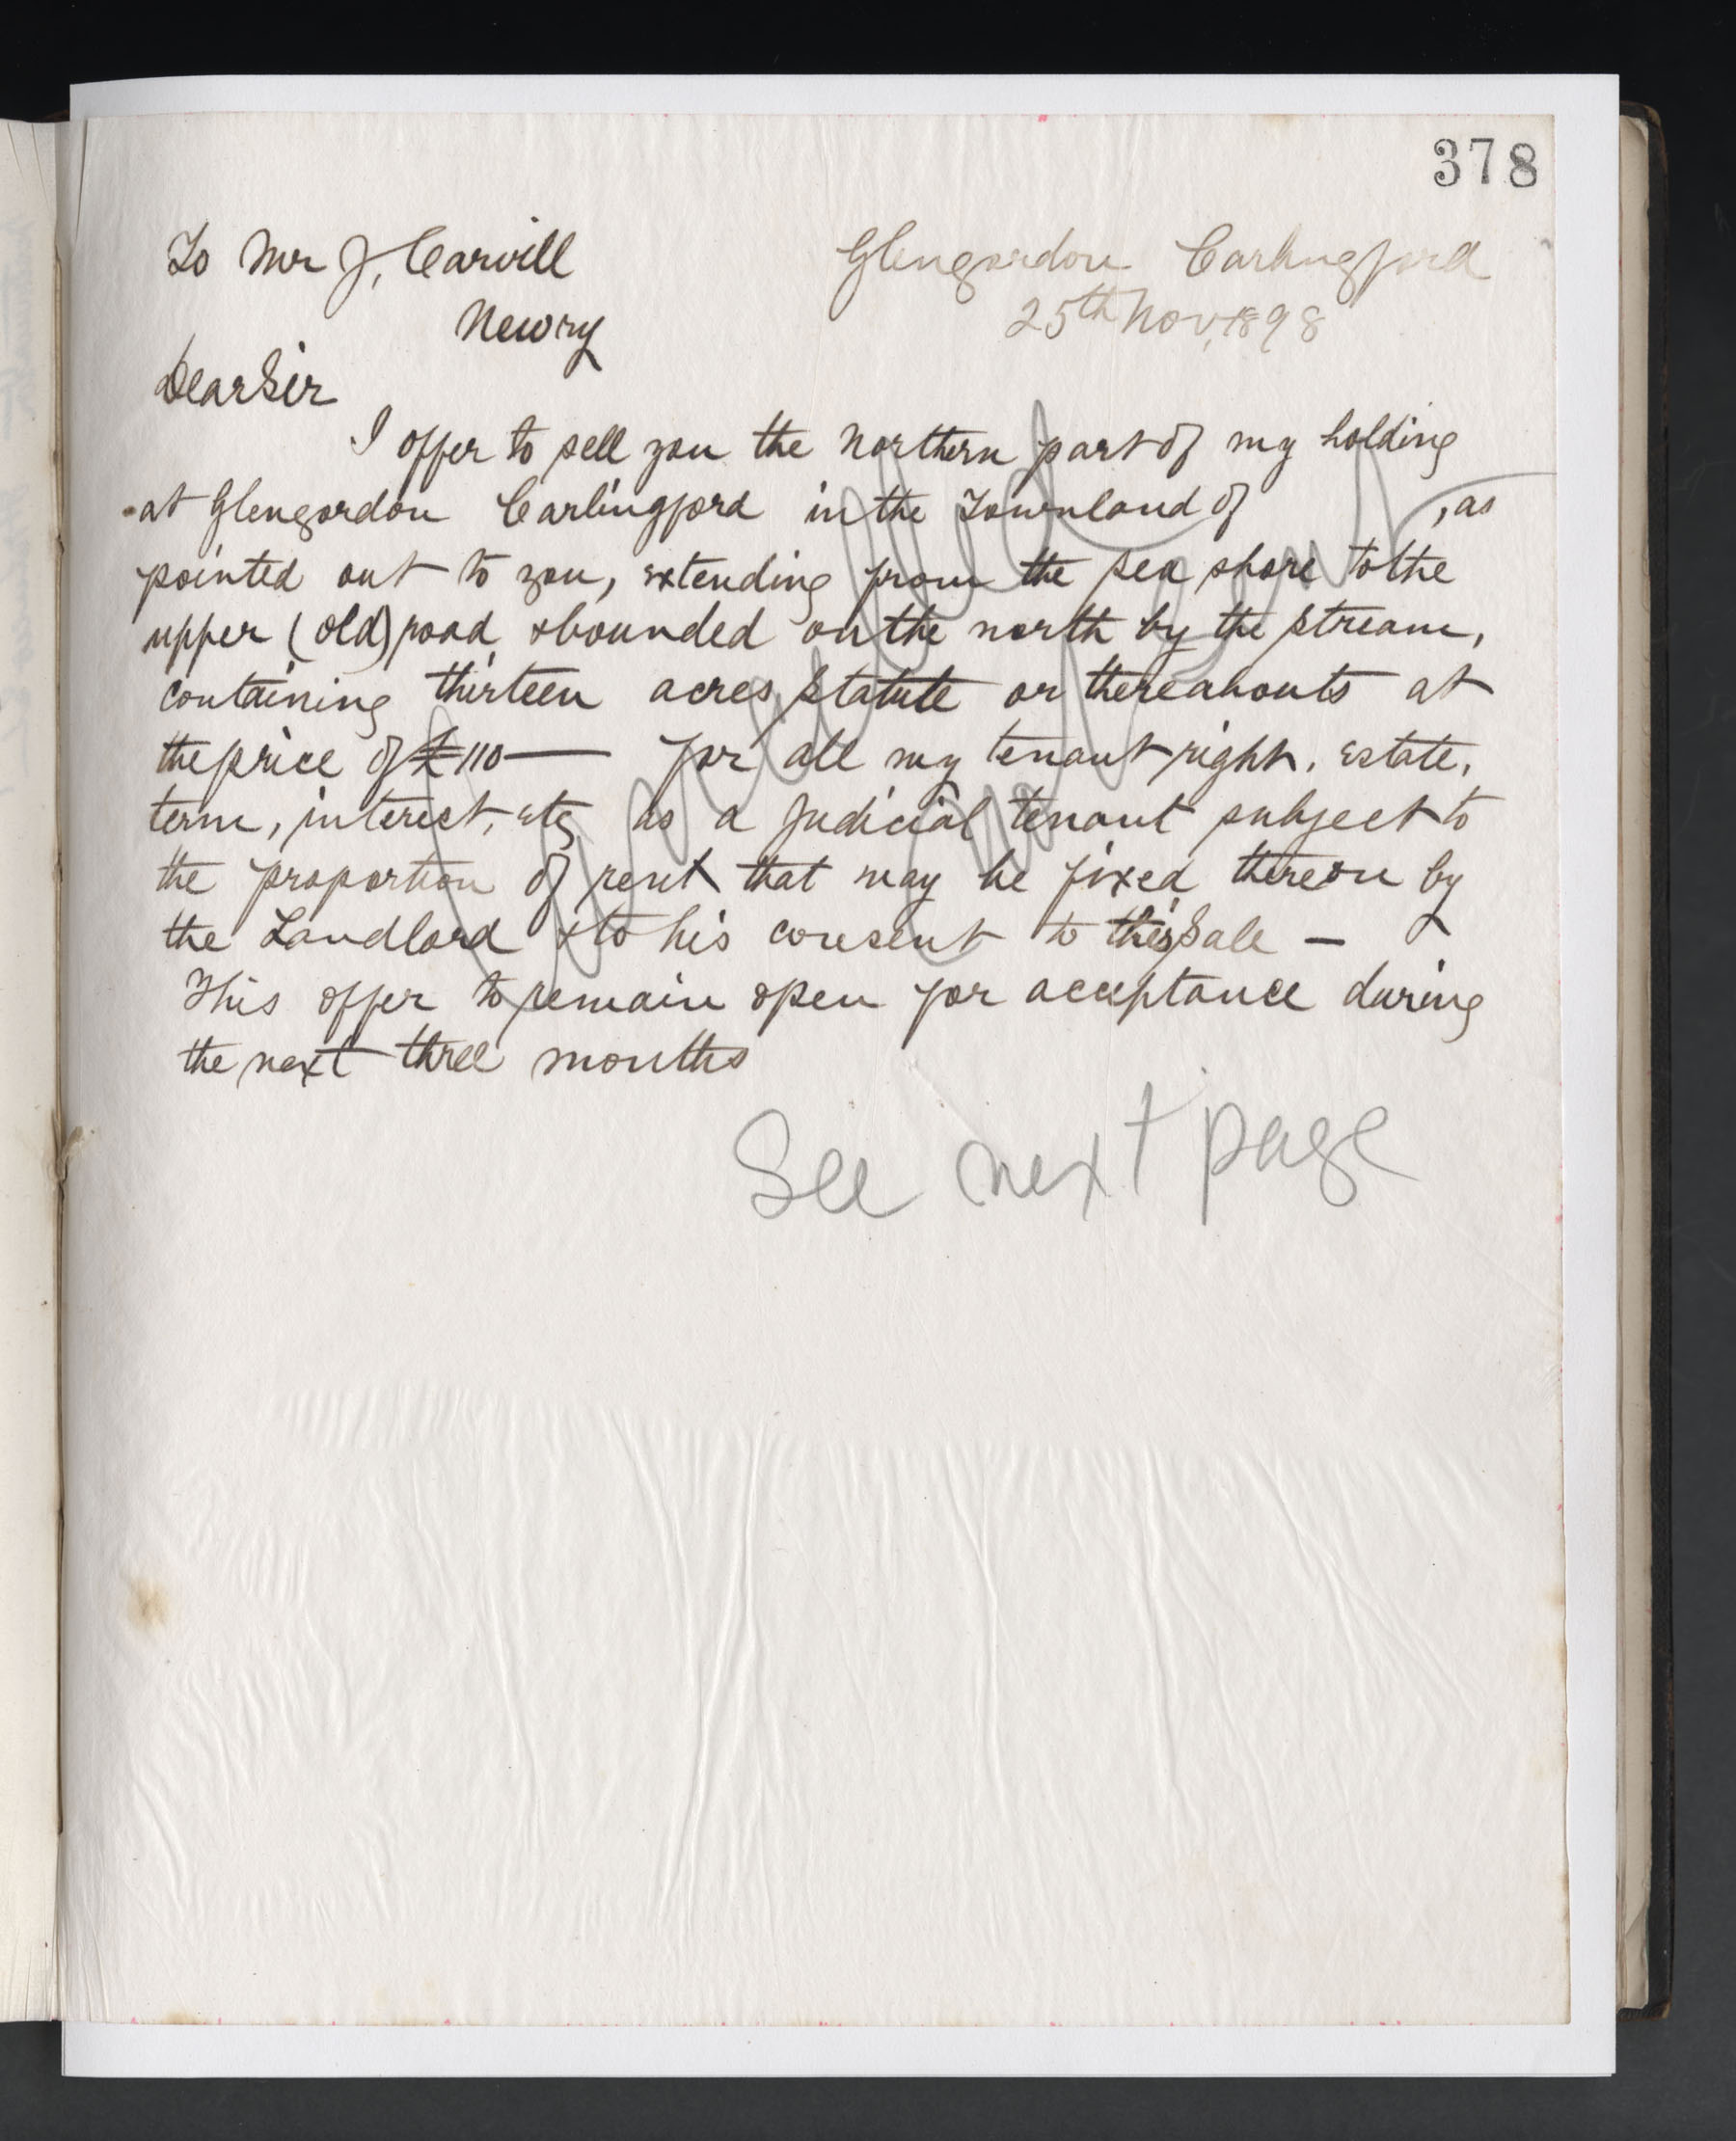 378
To Mr J, Carvill
Glengordon Carlingford
Newry
25th Nov, 1898
Dear Sir
I offer to sell you the Northern part of my holding
at Glengordon Carlingford in the Townland of , as
pointed out to you, extending from the sea shore to the
upper (old) road, & bounded on the north by the stream,
containing thirteen acres statute or thereabouts at
the price of £110 — for all my tenant right, estate,
term, interest, etc, as a judicial tenant subject to
the proportion of rent that may be fixed thereon by
the Landlord & to his consent to this Sale —
This offer to remain open for acceptance during
the next three months
See next page